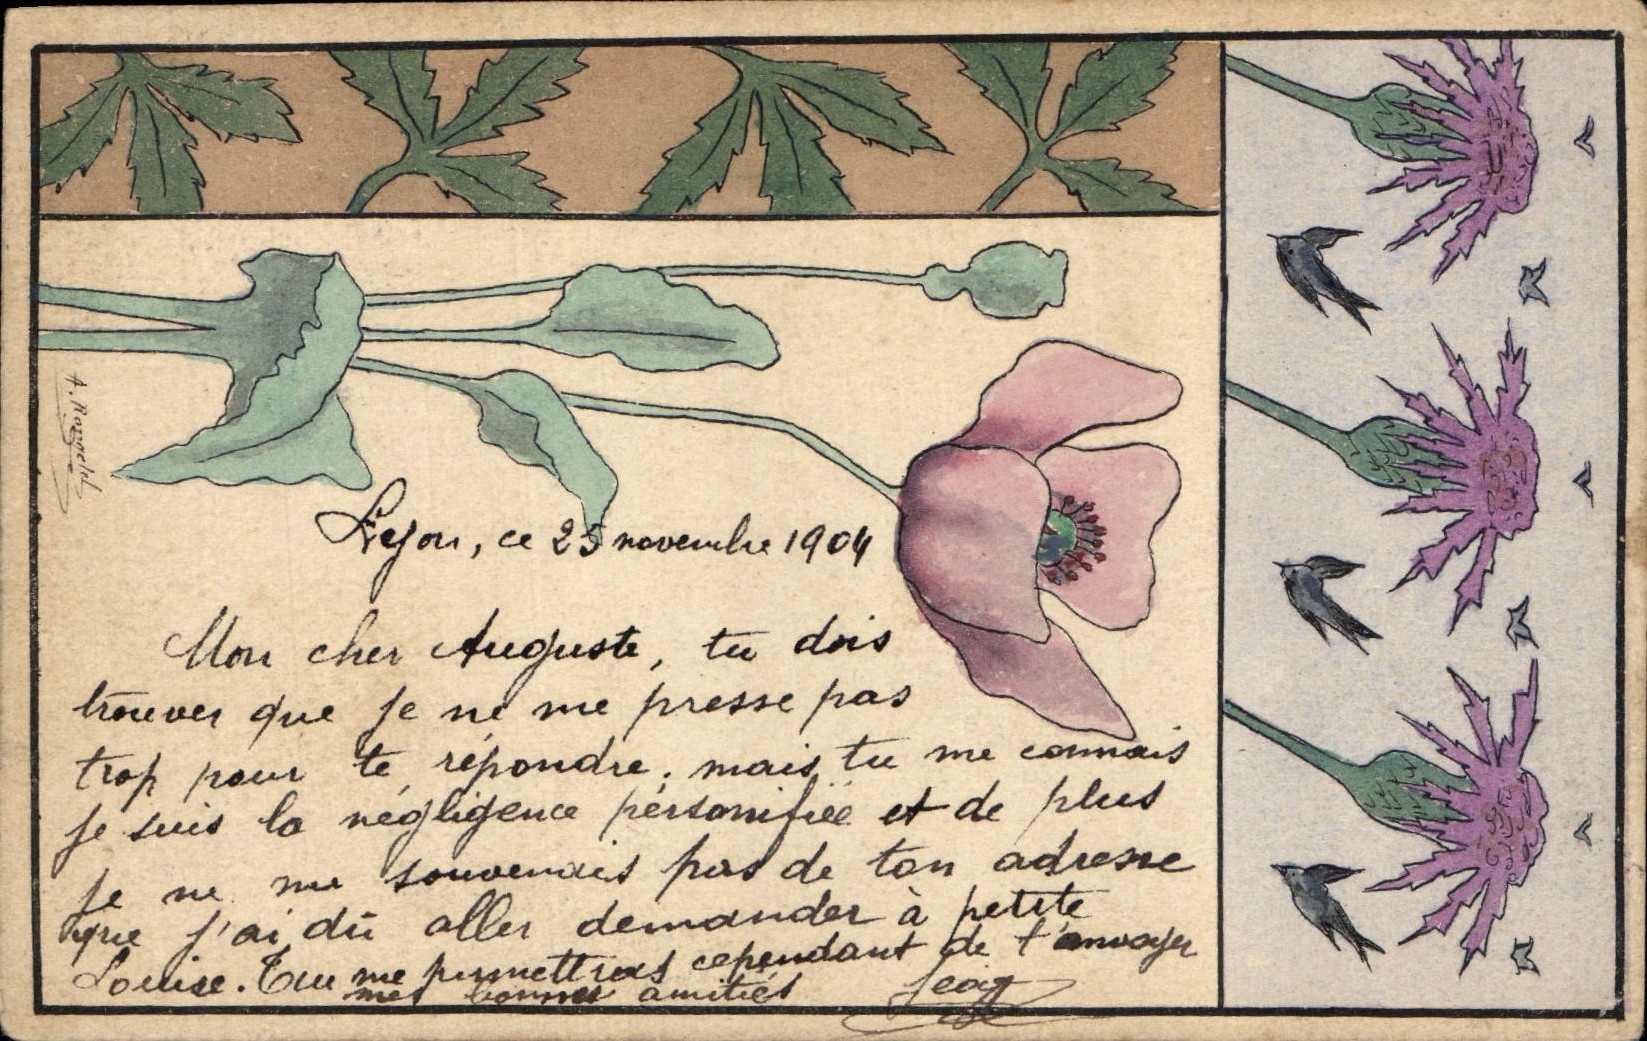 ce 25 novembre 1904
Mon cher Auguste, tu dois
trouver que je ne me presse pas
trop pour te répondre. mais tu me connais
je suis la négligence personifiée et de plus
je ne me souvenais pas de ton adresse
que j'ai dû aller demander à petite
Louise. Tu me permettras cependant de t'envoyer
mes bonnes amitiés